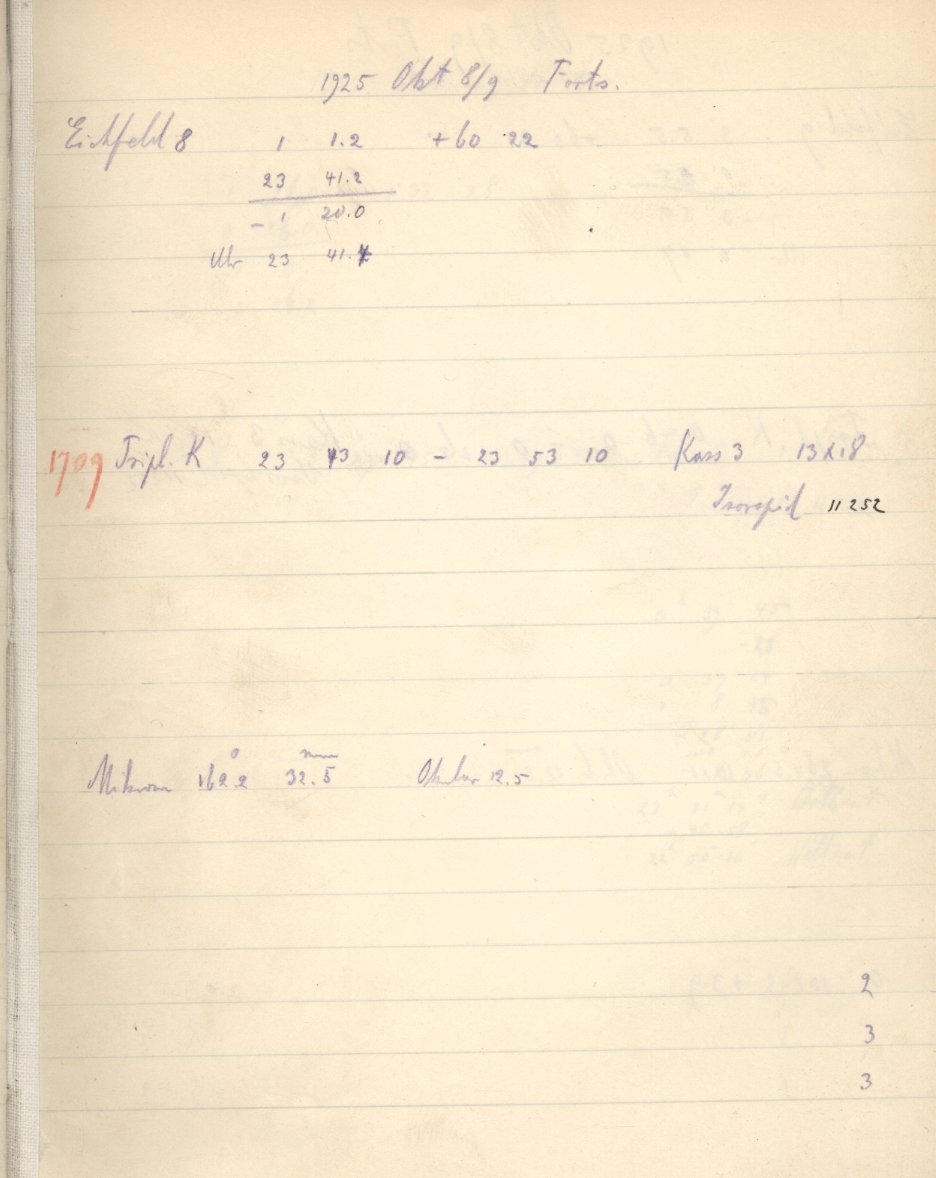 1925 Okt 8/9 Forts.
Eichfeld 8 1 1.2 +60 22
23 41.2
- 1 20.0
Uhr 23 41.
1709 Tripl. K 23 43 10 - 23 53 10 Kass 3 13x18
Isorapid 11252
Mikrom 162.2° 32.5 mm Okular 12.5
2
3
3